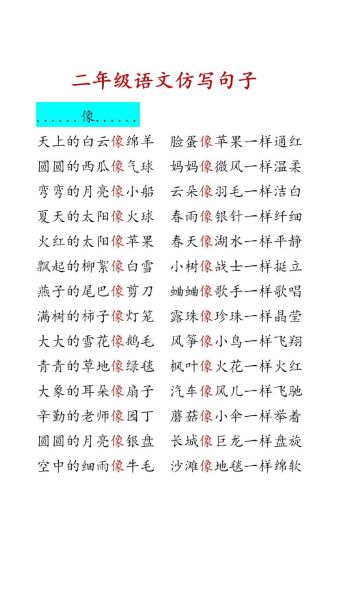 二年级语文仿写句子
......像......
天上的白云像绵羊 脸蛋像苹果一样通红
圆圆的西瓜像气球 妈妈像微风一样温柔
弯弯的月亮像小船 云朵像羽毛一样洁白
夏天的太阳像火球 春雨像银针一样纤细
火红的太阳像苹果 春天像湖水一样平静
飘起的柳絮像白雪 小树像战士一样挺立
燕子的尾巴像剪刀 蛐蛐像歌手一样歌唱
满树的柿子像灯笼 露珠像珍珠一样晶莹
大大的雪花像鹅毛 风筝像小鸟一样飞翔
青青的草地像绿毯 枫叶像火花一样火红
大象的耳朵像扇子 汽车像风儿一样飞驰
辛勤的老师像园丁 蘑菇像小伞一样举着
圆圆的月亮像银盘 长城像巨龙一样盘旋
空中的细雨像牛毛 沙滩像地毯一样绵软